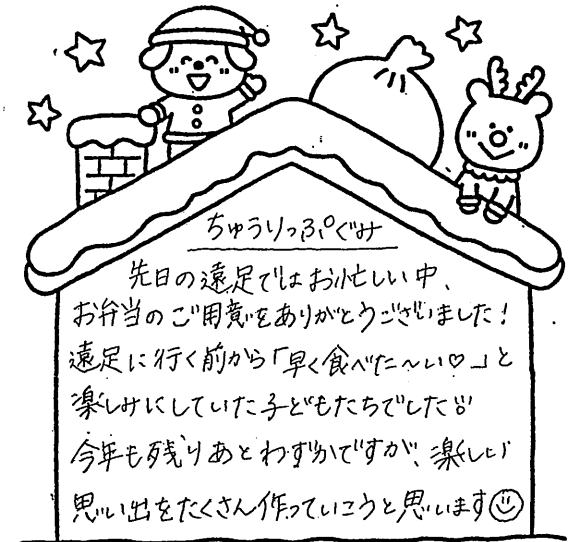 ちゅうりっぷぐみ
先日の遠足ではお忙しい中、
お弁当のご用意をありがとうございました！
遠足に行く前から「早く食べた〜い♡」と
楽しみにしていた子どもたちでした
今年も残りあとわずかですが、楽しい
思い出をたくさん作っていこうと思います☺